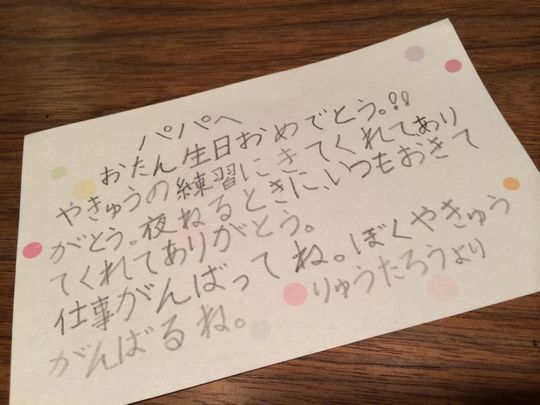 パパへ
おたん生日おめでとう。!!
やきゅうの練習にきてくれてあり
がとう。夜ねるときに、いつもおきて
てくれてありがとう。
仕事がんばってね。ぼくやきゅう
がんばるね。
りゅうたろうより